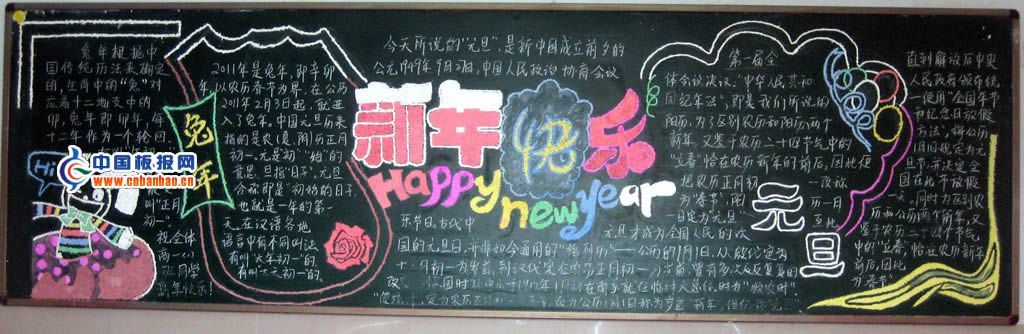 兔年根据中
国传统历法来确定
的，生肖中的“兔”对
应着十二地支中的
卯，兔年即卯年，每
十二年作为一个轮回
叫“正月
初一”。
祝全体
新年快乐！
中国板报网
www.cnbanbao.cn
兔年
2011年是兔年，即辛卯
年，以农历春节为界，在公历
2011年2月3日起，就进
入了兔年。中国元历来
指的是农（夏、阴）历正月
初一。元是“初”“始”的
意思，旦指“日子”，元旦
合称即是“初始的日子”，
也就是一年的第一
天。在汉语各地
语言中有不同叫法
有叫“大年初一”的，
有叫“大天初一”的，
今天所说的“元旦”，是新中国成立前夕的
公元1949年9月27日，中国人民政治协商会议
新年快乐
Happy
new year
第一届全
体会议决议：“中华人民共和
国纪年法”，即是我们所说的
阳历，为了区别农历和阳历两个
新年，又鉴于农历二十四节气中的
“立春”恰在农历新年的前后，因此便
把农历正月初一改称
为“春节”，阳历一月一
日定为“元旦”，至此
元旦才成为全国人民的欢
乐节日。古代中
国的元旦日，并非如今通用的“格列历”——公历的1月1日。从殷代定为
十二月初一为岁首，到汉代定在农历正月初一
元旦
直到解放后中央
人民政府颁布统
一使用“全国年节
和纪念日放假
办法”，将公历
1月1日规定为元
旦节，并决定全
国在此节放假
一天，同时为区别农
历两公历两个新年，又
鉴于农历二十四节气
中的“立春”恰在农历新年
前后，因此